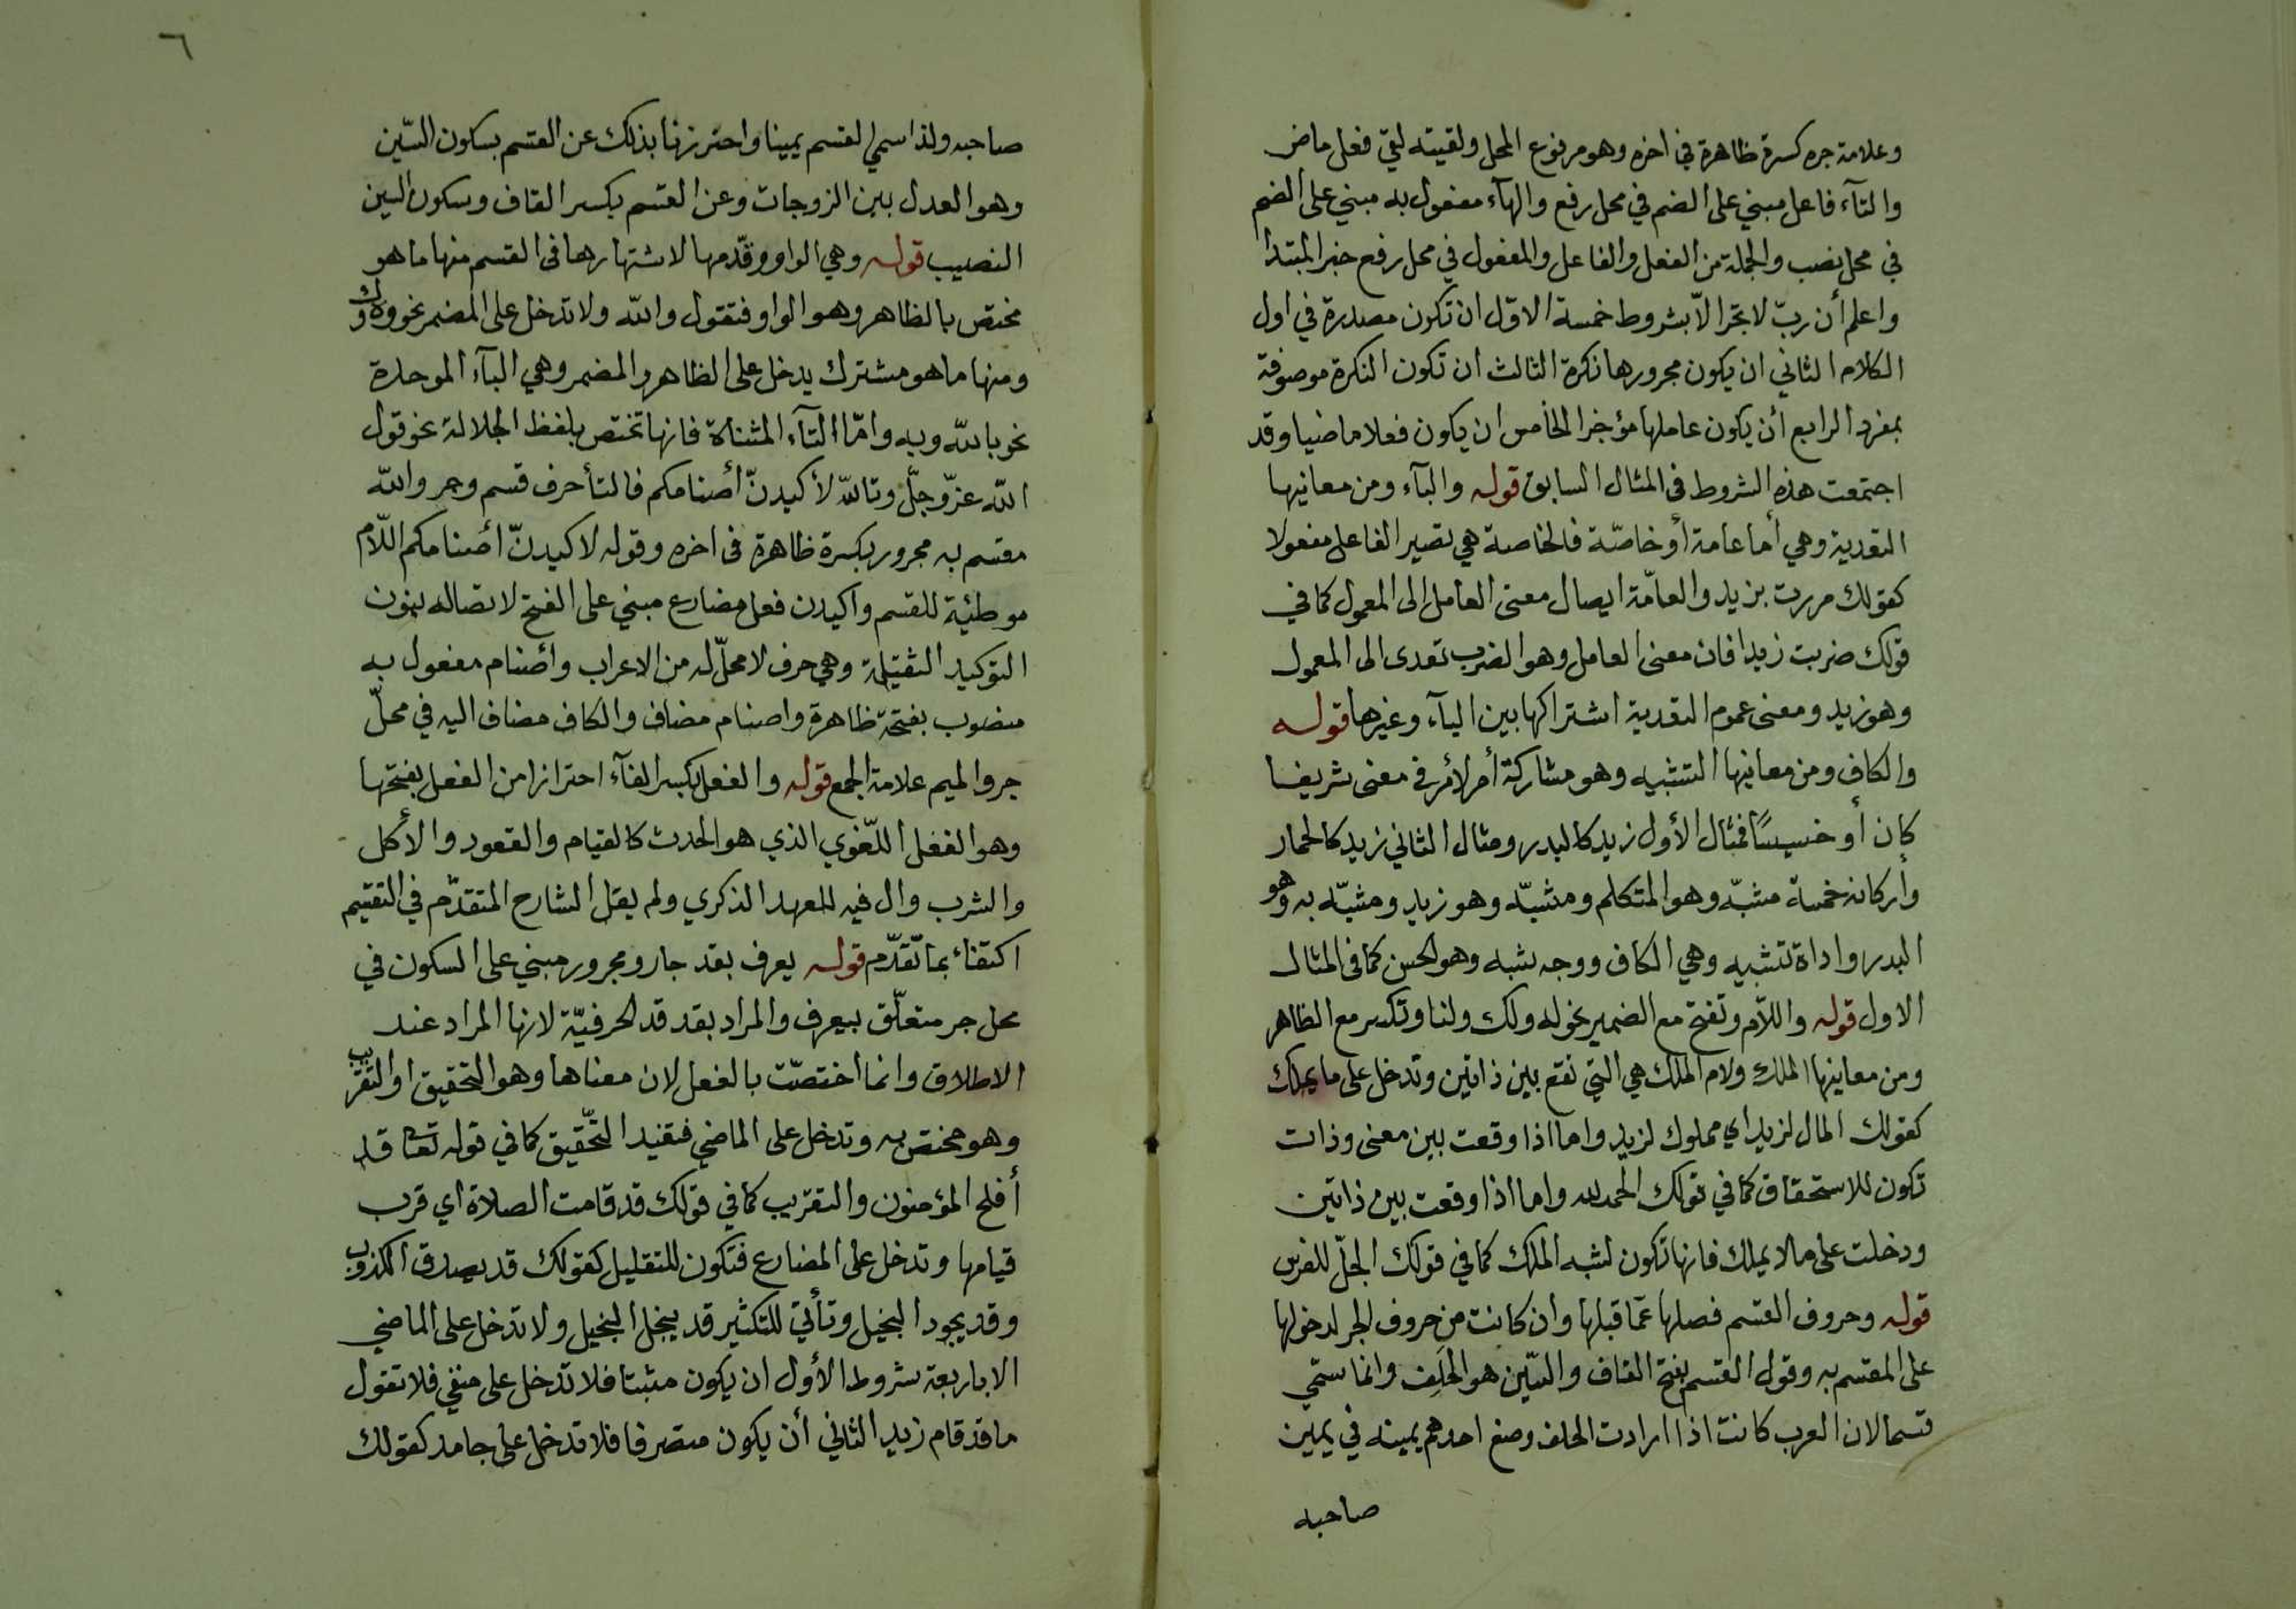 وعلامة جره كسرة ظاهرة في اخره وهو مرفوع المحل ولقيته لقي فعل ماض
والتآء فاعل مبني على الضم في محل رفع والهآء مفعول به مبني على الضم
في محل نصب والجملة من الفعل والفاعل والمفعول في محل رفع خبر المبتدا
واعلم أن ربّ لا تجر الاّ بشروط خمسة الاوّل ان تكون مصدرة في اول
الكلام الثاني ان يكون مجرورها نكرة الثالث ان تكون النكرة موصوفة
بمفرد الرابع أن يكون عاملها مؤخرا الخامس ان يكون فعلا ماضيا وقد
اجتمعت هذه الشروط في المثال السابق قوله والبآء ومن معانيها
التعدية وهي أما عامة أو خاصّة فالخاصة هي تصير الفاعل مفعولا
كقولك مررت بزيد والعامّة ايصال معنى العامل الى المعمول كما في
قولك ضربت زيدا فان معنى العامل وهو الضرب تعدى الى المعمول
وهو زيد ومعنى عموم التعدية اشتراكها بين البآء وغيرها قوله
والكاف ومن معانيها التشبيه وهو مشاركة أمر لأمر في معنى شريفا
كان أو خسيسًا فمثال الأول زيد كالبدر ومثال الثاني زيد كالحمار
وأركانه خمسة مشبّه وهو المتكلم ومشبّه وهو زيد ومشبّه به وهو
البدر واداة تشبيه وهي الكاف ووجه شبه وهو الحسن كما في المثال
الاول قوله واللاّم وتفتح مع الضمير نحو له ولك ولنا وتكسر مع الظاهر
ومن معانيها الملك ولام الملك هي التي تقع بين ذاتين وتدخل على ما يملك
كقولك المال لزيد اي مملوك لزيد واما اذا وقعت بين معنى وذات
تكون للاستحقاق كما في قولك الحمد لله واما اذا وقعت بين ذاتين
ودخلت على ما لا يملك فانها تكون لشبه الملك كما في قولك الجلّ للفرس
قوله وحروف القسم فصلها عمّا قبلها وان كانت من حروف الجر لدخولها
على المقسم به وقول القسم بفتح القاف والسّين هو الحلِف وانما سمّي
قسما لان العرب كانت اذا ارادت الحلف وضع احدهم يمينه في يمين
صاحبه
٦
صاحبه ولذا سمي القسم يمينا واحترزنا بذلك عن القسم بسكون السّين
وهو العدل بين الزوجات وعن القسم بكسر القاف وسكون السين
النصيب قوله وهي الواو وقدّمها لاشتهارها في القسم منها ما هو
مختص بالظاهر وهو الواو فتقول والله ولا تدخل على المضمر نحو وه وك
ومنها ما هو مشترك يدخل على الظاهر والمضمر وهي البآء الموحدة
نحو بالله وبه وامّا التآء المثناة فانها تختص بلفظ الجلالة نحو قول
الله عزّ وجلّ وتالله لأكيدنّ أصنامكم فالتأ حرف قسم وجر والله
مقسم به مجرور بكسرة ظاهرة في اخره وقوله لاكيدنّ اصنامكم اللاّم
موطئة للقسم واكيدن فعل مضارع مبني على الفتح لاتصاله بنون
التوكيد الثقيلة وهي حرف لا محلّ له من الاعراب وأصنام مفعول به
منصوب بفتحة ظاهرة واصنام مضاف والكاف مضاف اليه في محلّ
جر والميم علامة الجمع قوله والفعل بكسر الفآء احترازا من الفعل بفتحها
وهو الفعل اللّغوي الذي هو الحدث كالقيام والقعود والأكل
والشرب وال فيه للعهد الذكري ولم يقل الشارح المتقدّم في التقسيم
اكتفاء بما تقدّم قوله يعرف بقد جار ومجرور مبني على السكون في
محل جر متعلّق بيعرف والمراد بقد قد الحرفيّة لانها المراد عند
الاطلاق وانما اختصّت بالفعل لان معناها وهو التحقيق او التقريب
وهو مختص به وتدخل على الماضي فتفيد التّحقيق كما في قوله تعا قد
أفلح المؤمنون والتقريب كما في قولك قد قامت الصلاة اي قرب
قيامها وتدخل على المضارع فتكون للتقليل كقولك قد يصدق الكذوب
وقد يجود البخيل وتأتي للتكثير قد يبخل البخيل ولا تدخل على الماضي
الا باربعة شروط الأول ان يكون مثبتا فلا تدخل على منفي فلا تقول
ما قد قام زيد الثاني أن يكون متصرفا فلا تدخل على جامد كقولك